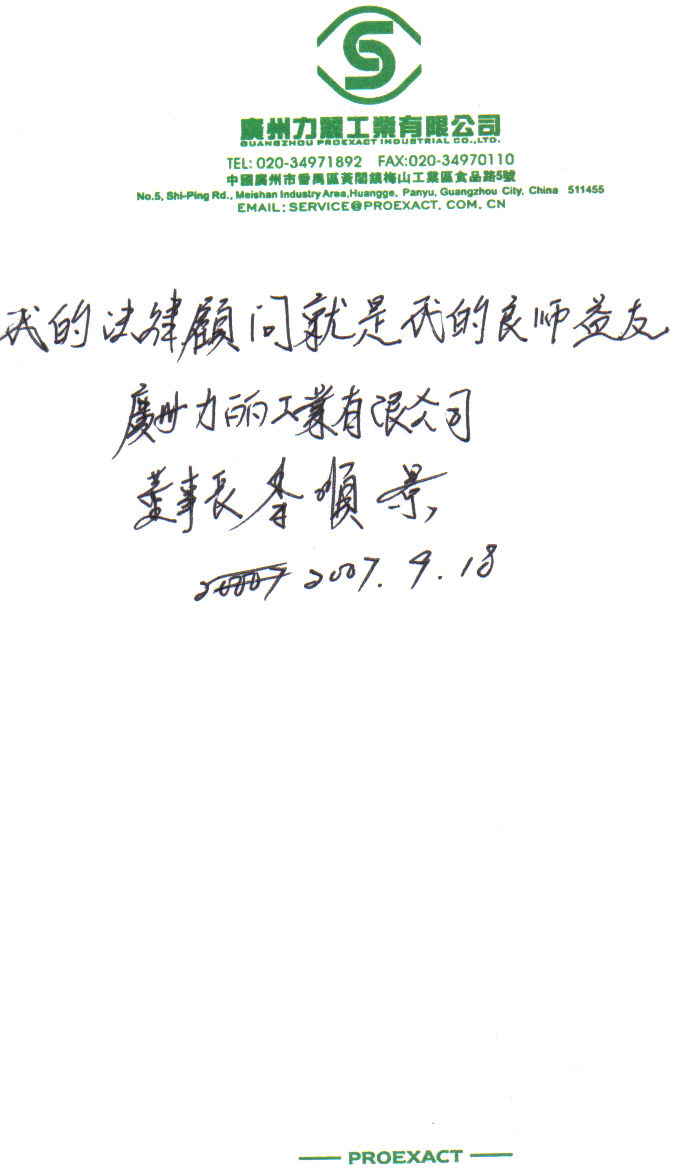 廣州力麗工業有限公司
GUANGZHOU PROEXACT INDUSTRIAL CO.,LTD.
TEL: 020-34971892 FAX:020-34970110
中國廣州市番禺區黃閣鎮梅山工業區食品路5號
No.5, Shi-Ping Rd., Meishan Industry Area,Huangge, Panyu, Guangzhou City, China 511455
EMAIL: SERVICE@PROEXACT. COM. CN
我的法律顧问就是我的良师益友
廣州力丽工業有限公司
董事長李順景
2007. 9. 18
PROEXACT